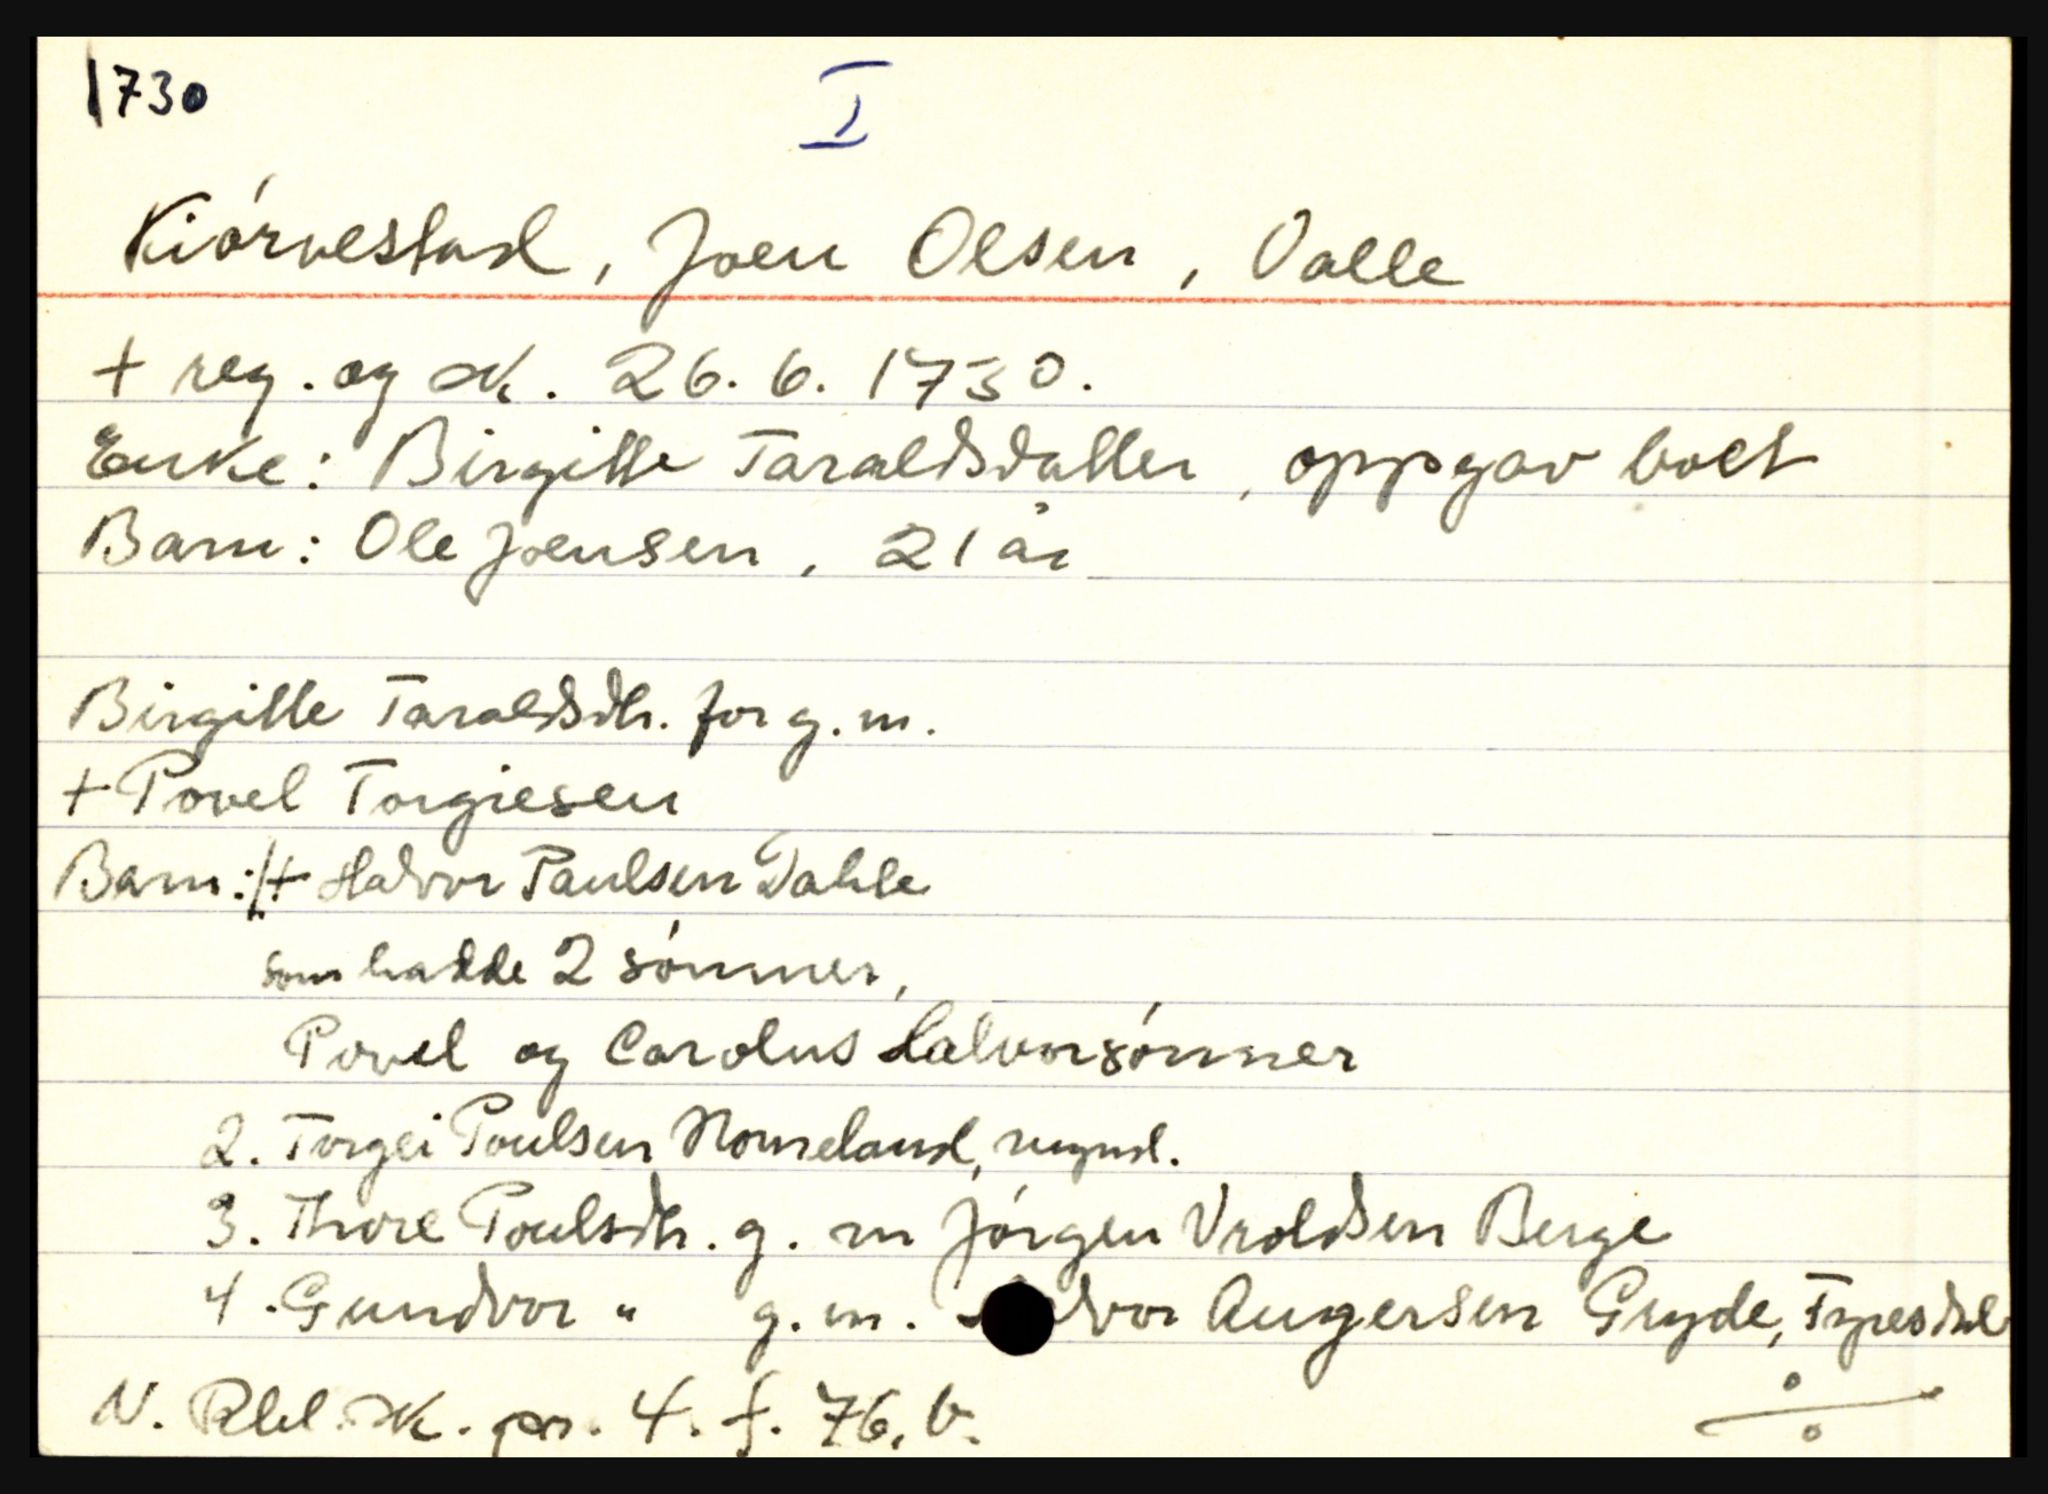 1730
I
Kiórvestad, Joen Olsen, Valle
+ reg. og sk. 26.6.1730.
Enke: Birgitte Taraldsdatter, oppgav boet
Barn: Ole Joensen, 21 år
Birgitte Taraldsdtr. for g.m.
+ Povel Torgiesen
Barn: 1. + Halvor Paulsen Dahle
som hadde 2 sónner,
Povel og Carolus Halvorsónner
2. Torgei Poulsen Homeland, mynd.
3. Thore Poulsdtr. g. m Jórgen Vroldsen Berge
4. Gundvor " g.m. Augersen Gryde, Fyresdal
N. Rbl. sk. pr. 4. f. 76. b.
÷